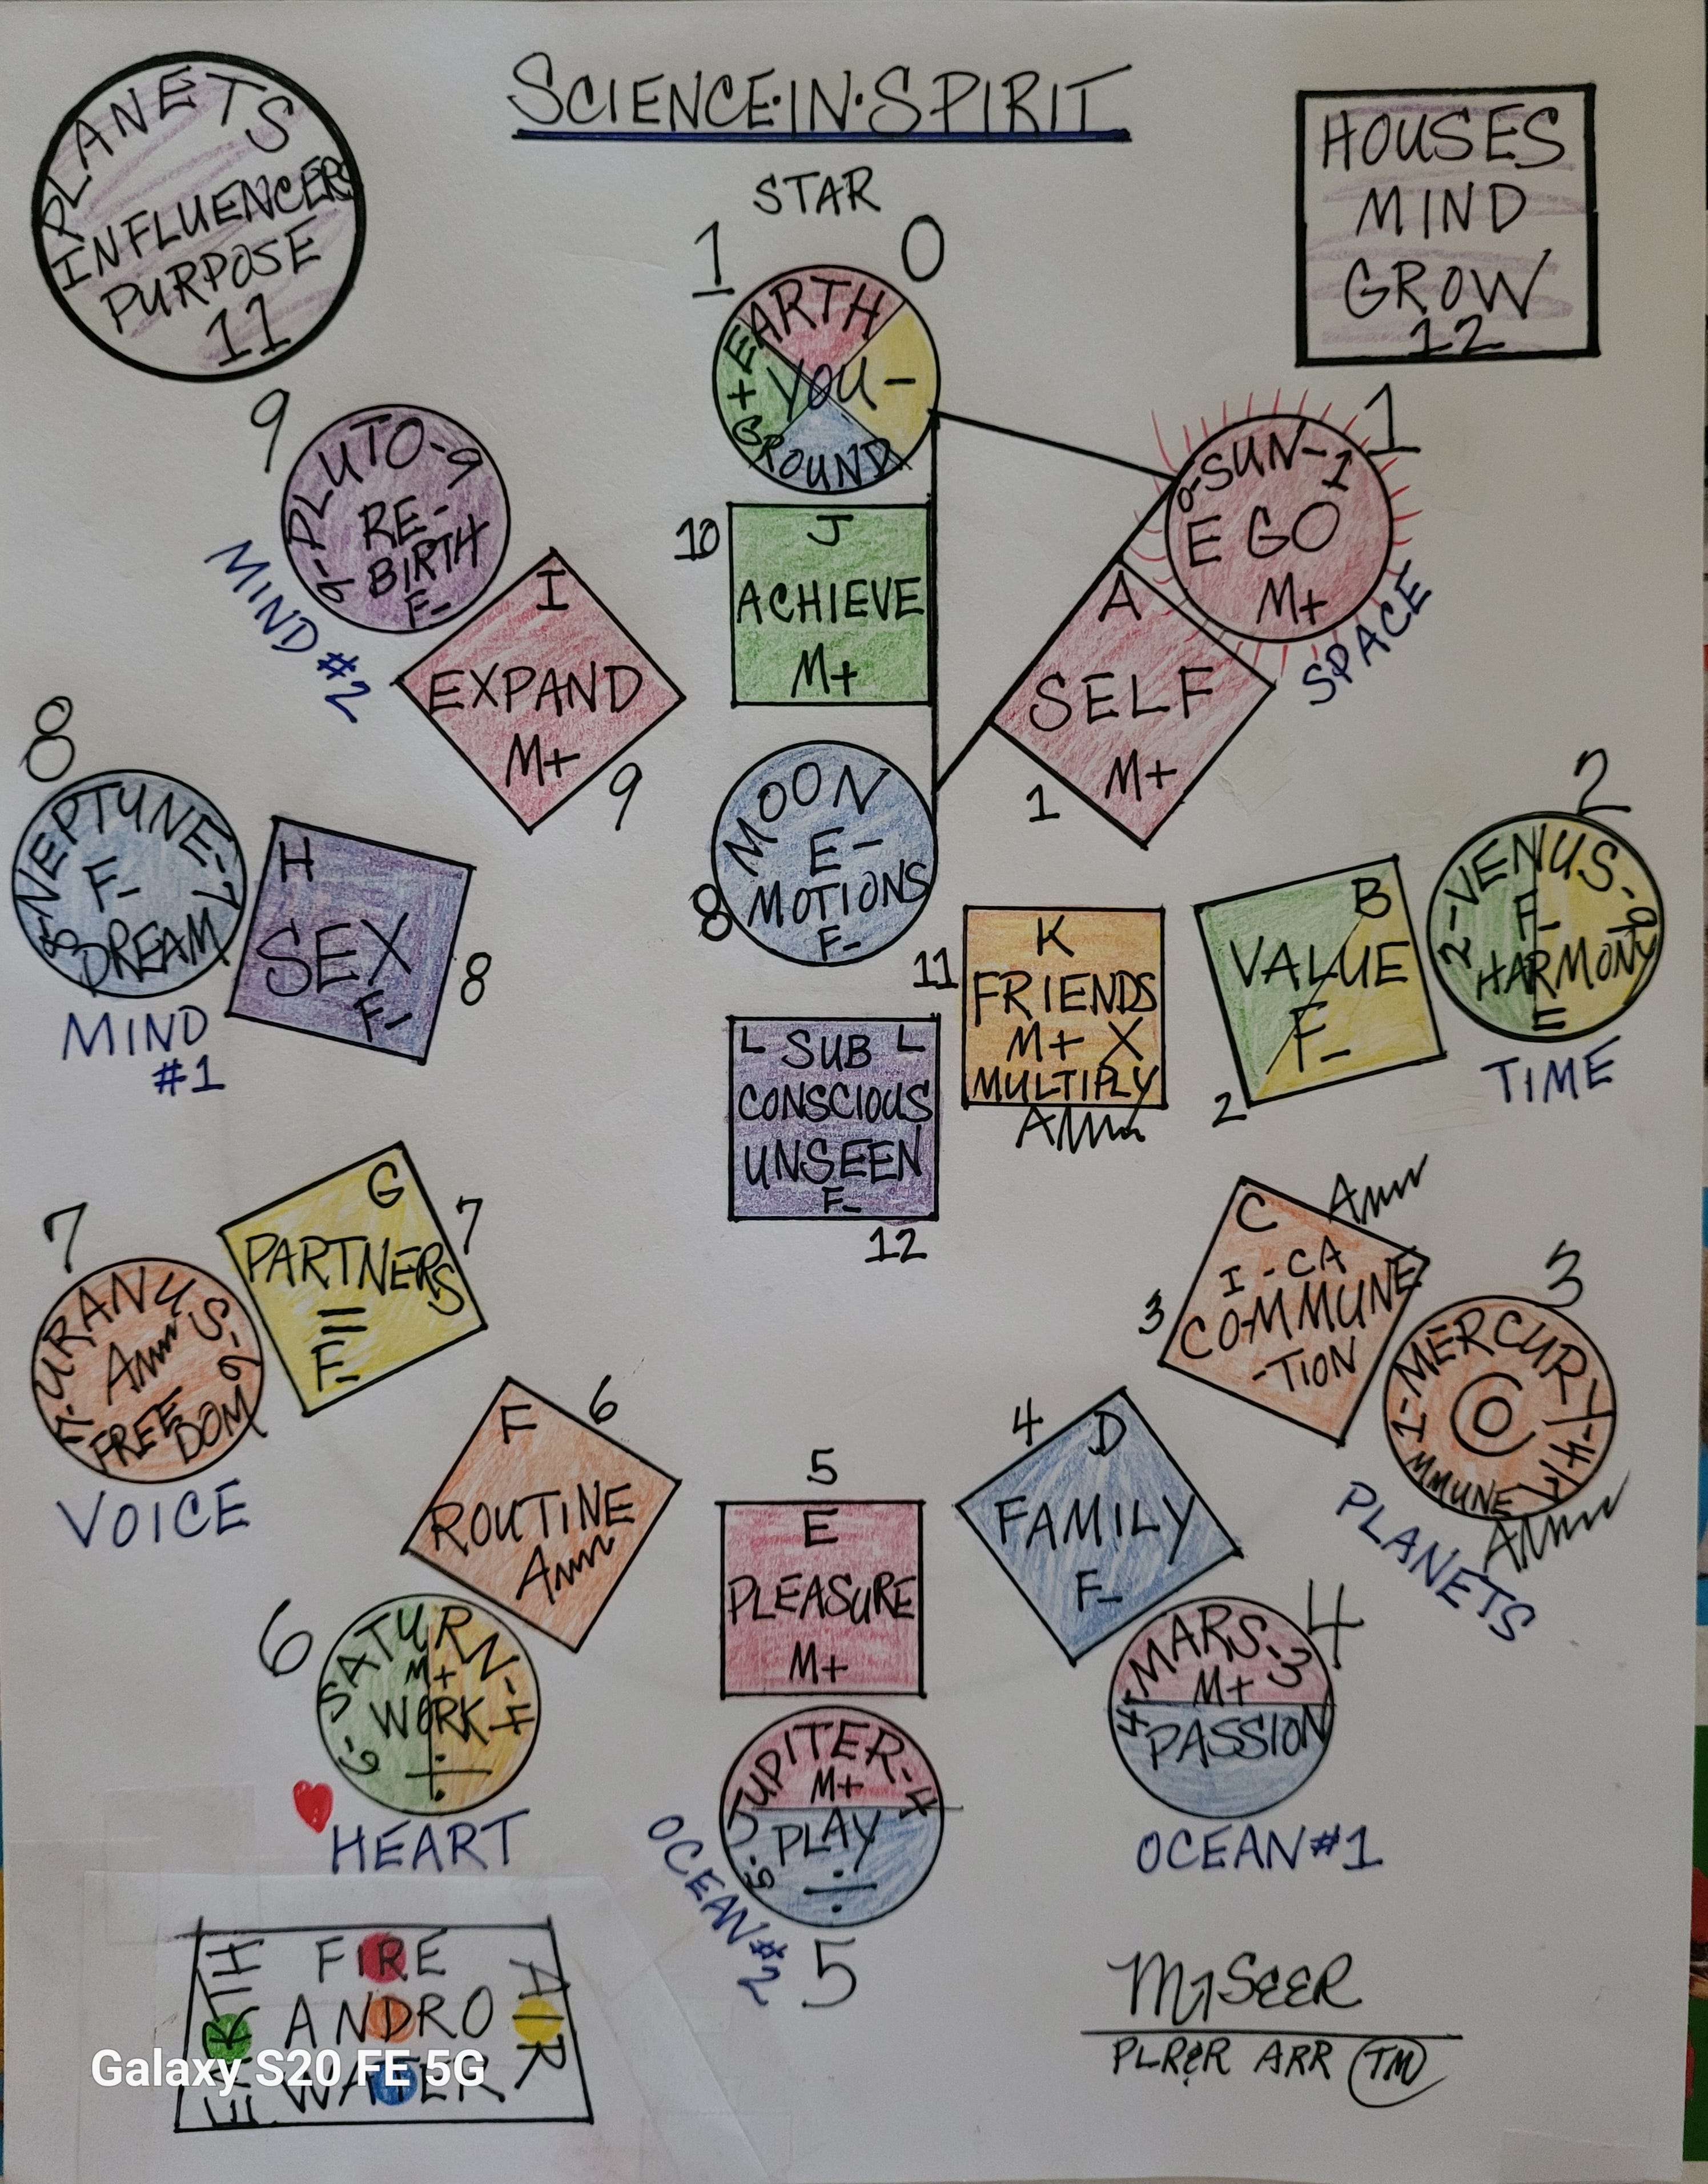 SCIENCE·IN·SPIRIT
PLANETS
INFLUENCERS
PURPOSE
11
HOUSES
MIND
GROW
12
STAR
1
0
EARTH
+ YOU -
GROUND
10
J
ACHIEVE
M+
MOON
E-
MOTIONS
F-
8
1
0-SUN-1
EGO
M+
SPACE
A
SELF
M+
1
2
2-VENUS-9
F-
HARMONY
E
TIME
B
VALUE
F-
2
K
FRIENDS
M+ X
MULTIPLY
11
L SUB L
CONSCIOUS
UNSEEN
F-
12
C
I-CA
COMMUNE
-TION
3
3
1-MERCURY
MMUNE
PLANETS
4
D
FAMILY
F-
4
4-MARS-3
M+
PASSION
OCEAN#1
5
E
PLEASURE
M+
JUPITER-4
M+
PLAY
÷
5
OCEAN#2
6
F
ROUTINE
6
SATURN
M+
WORK
÷
HEART
7
G
PARTNERS
=
F-
7
URANUS-6
FREEDOM
VOICE
8
H
SEX
F-
8
8-NEPTUNE-7
F-
DREAM
MIND
#1
9
PLUTO-9
RE-
BIRTH
F-
MIND #2
I
EXPAND
M+
9
EARTH
FIRE
ANDRO
WATER
AIR
PLR&R ARR TM
Galaxy S20 FE 5G